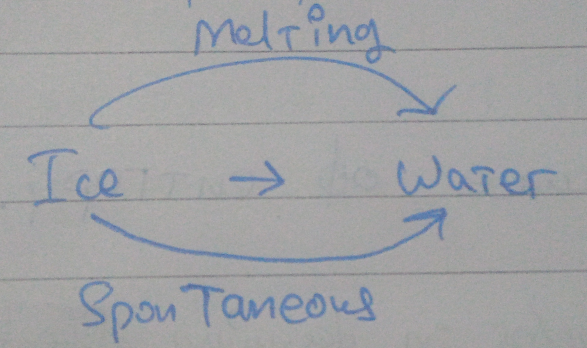 Melting
Ice → Water
Spontaneous